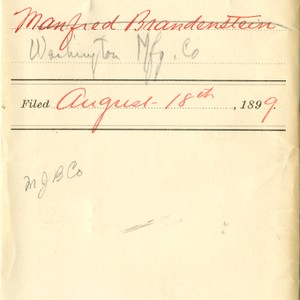 Manfred Brandenstein
Washington Mfg. Co
Filed August 18th, 1899.
M J B Co